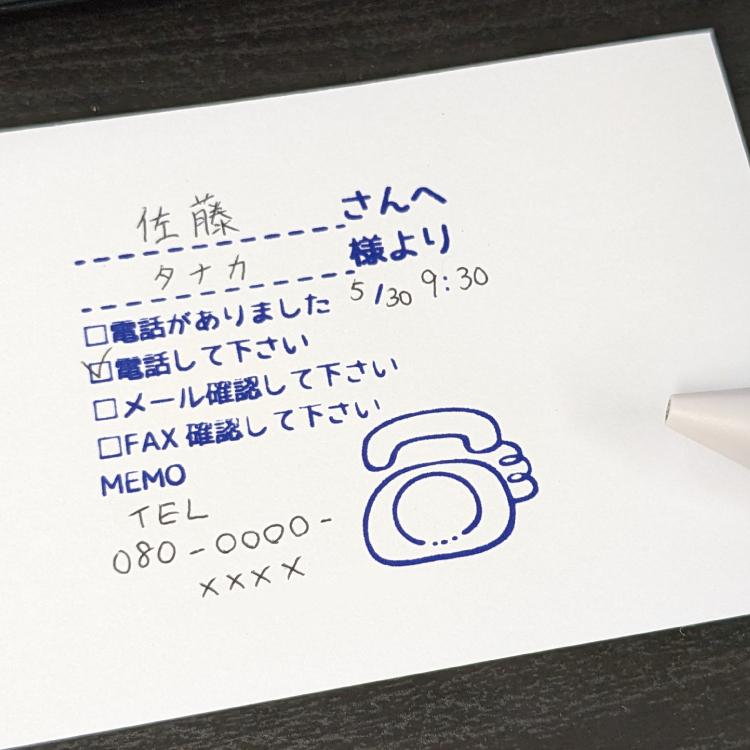 佐藤 さんへ
タナカ 様より
5/30 9:30
□電話がありました
☑電話して下さい
□メール確認して下さい
□FAX 確認して下さい
MEMO
TEL
080-0000-
××××